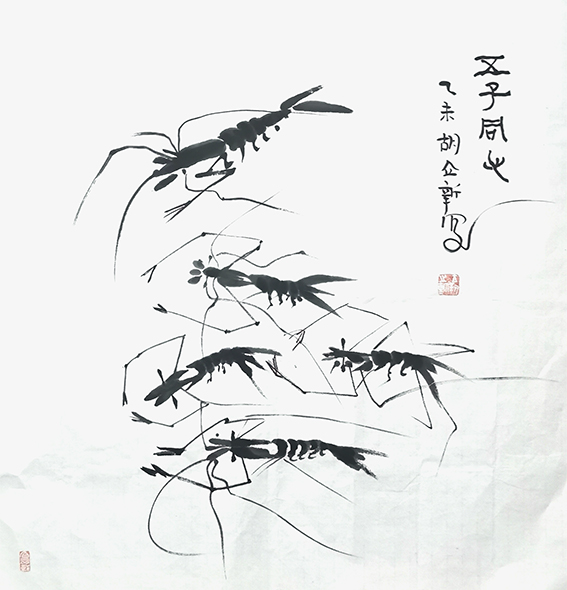 五子同心
乙未胡立新写